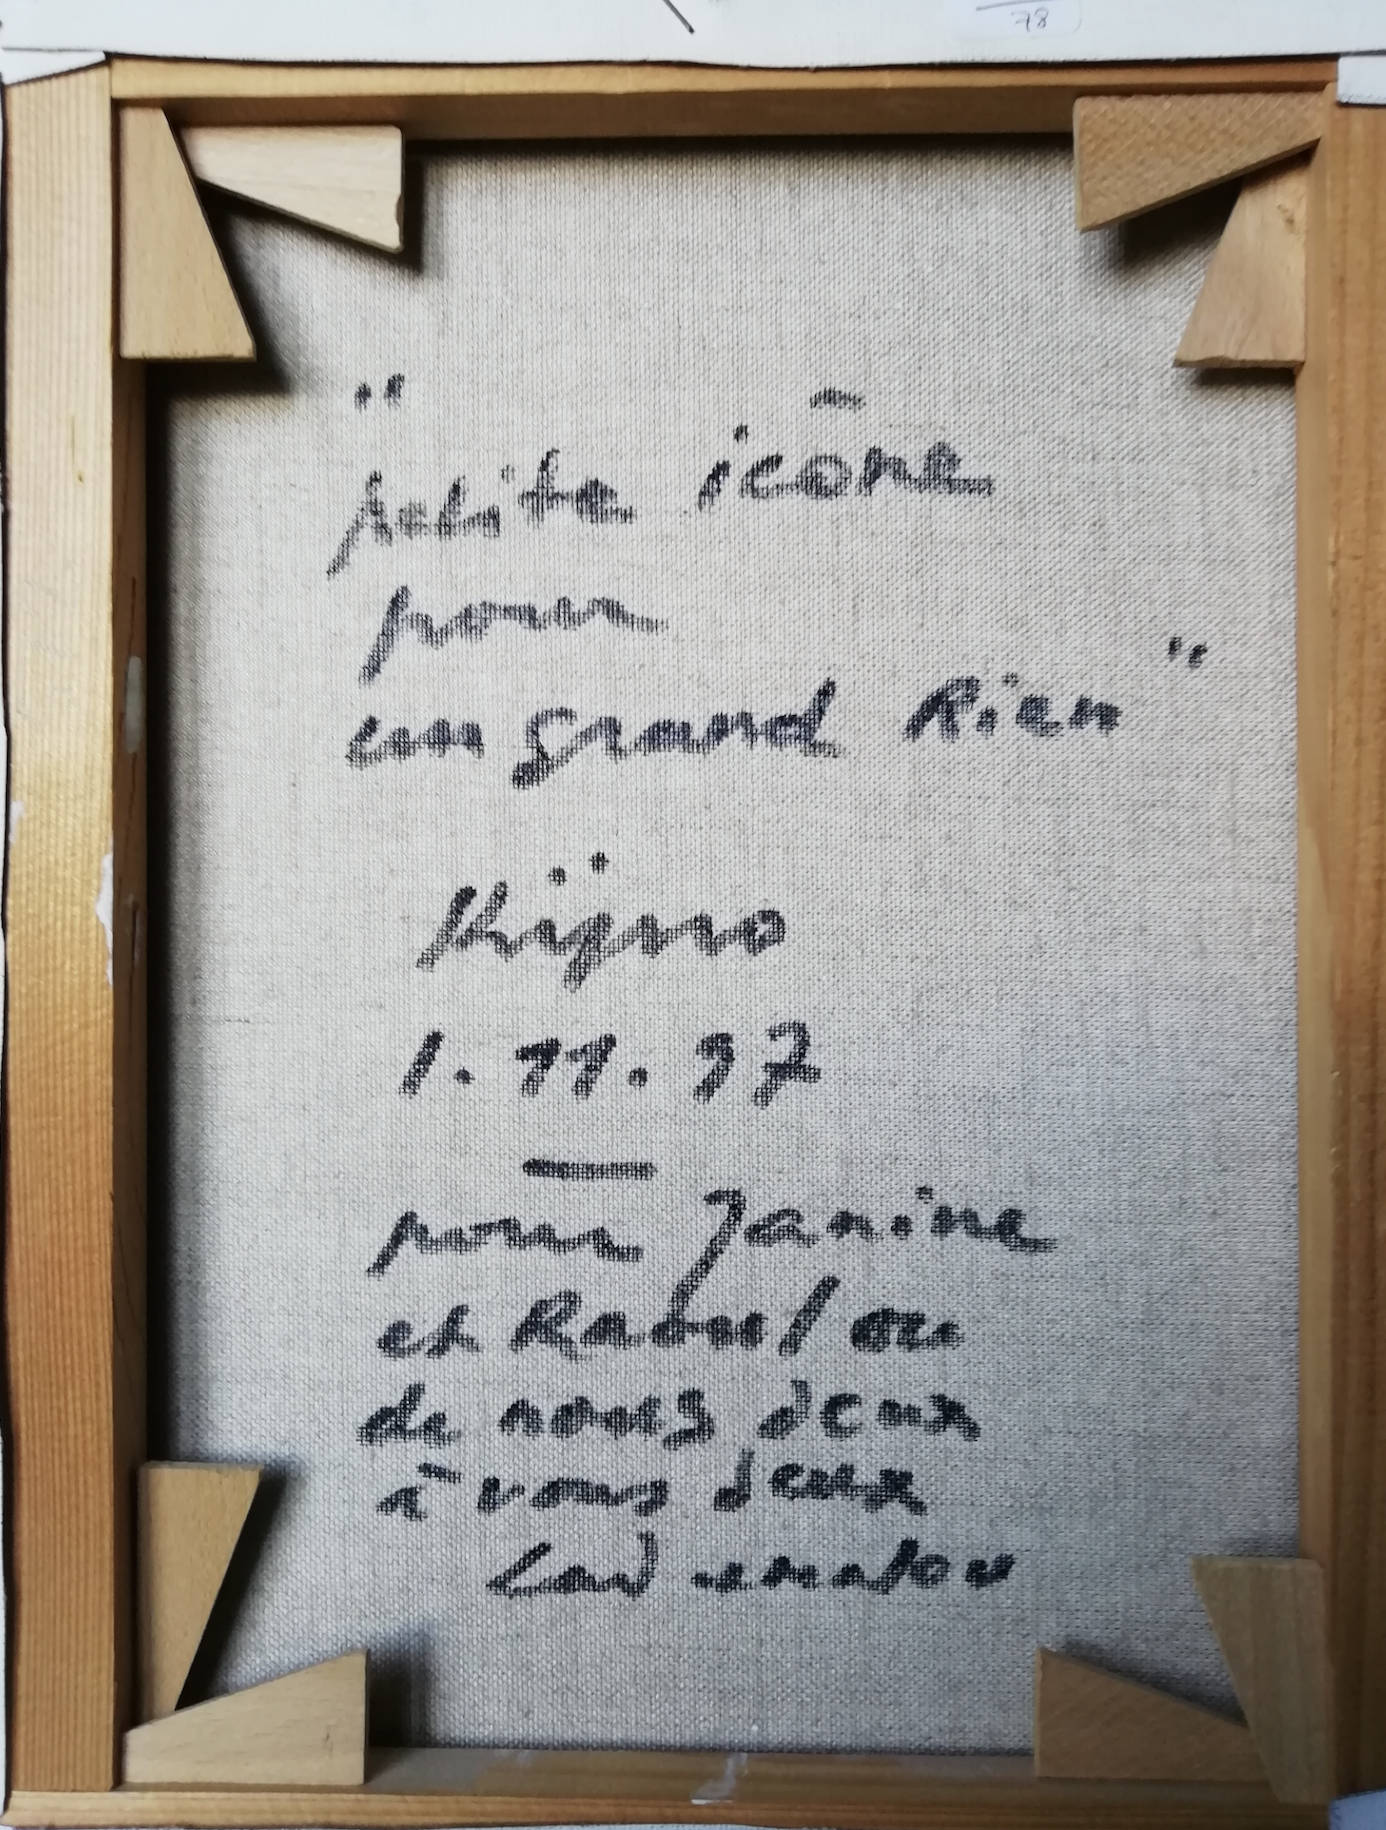 78
"
petite icône
pour
un grand Rien"
Kijno
1.11.97
pour Janine
et Raoul ou
de nous deux
à vous deux
Lad